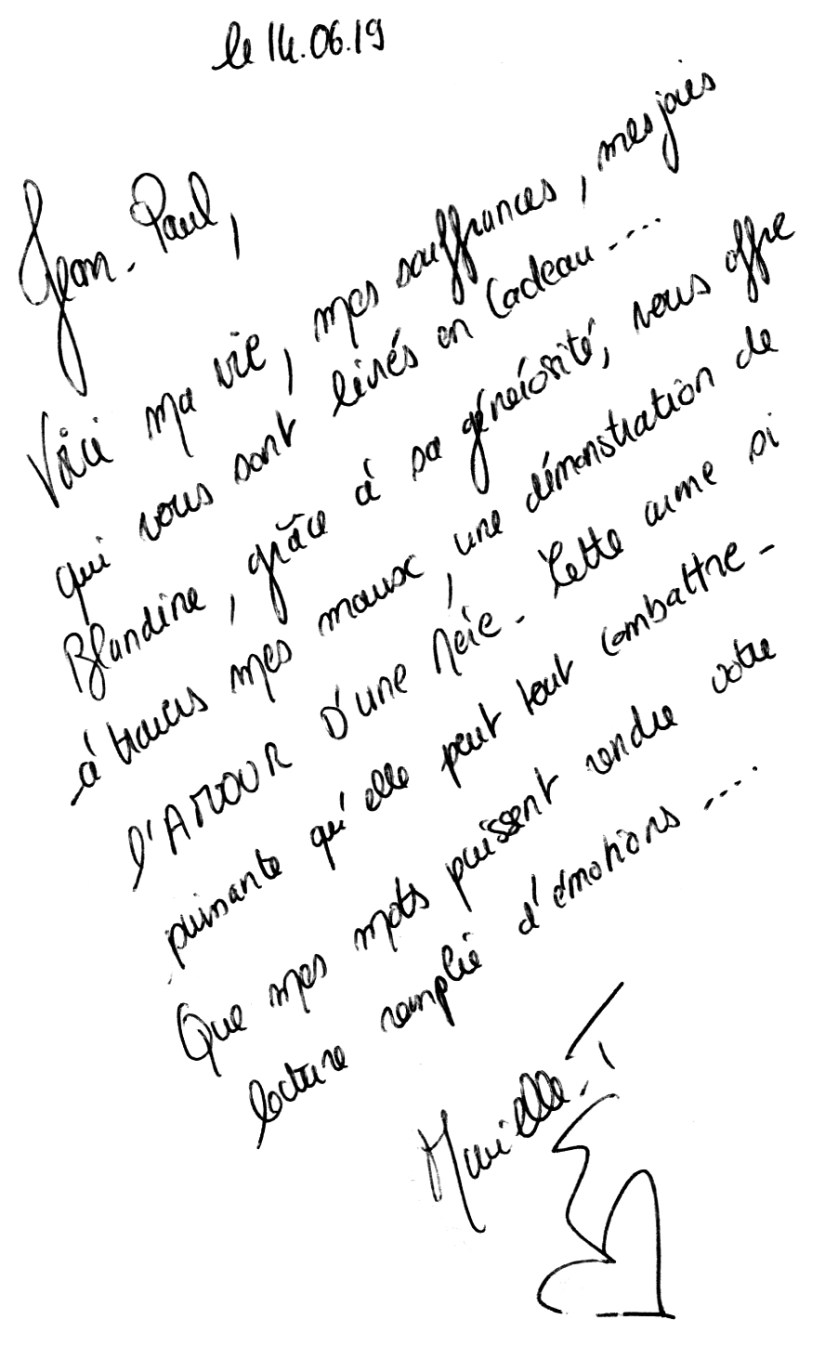 le 14.06.19
Jean-Paul,
Voici ma vie, mes souffrances, mes joies
qui vous sont livrés en Cadeau....
Blandine, grâce à sa générosité, vous offre
à travers mes maux, une démonstration de
l'AMOUR D'une Mère. Cette arme si
puissante qu'elle peut tout combattre.
Que mes mots puissent rendre votre
lecture remplie d'émotions ....
Marielle. T